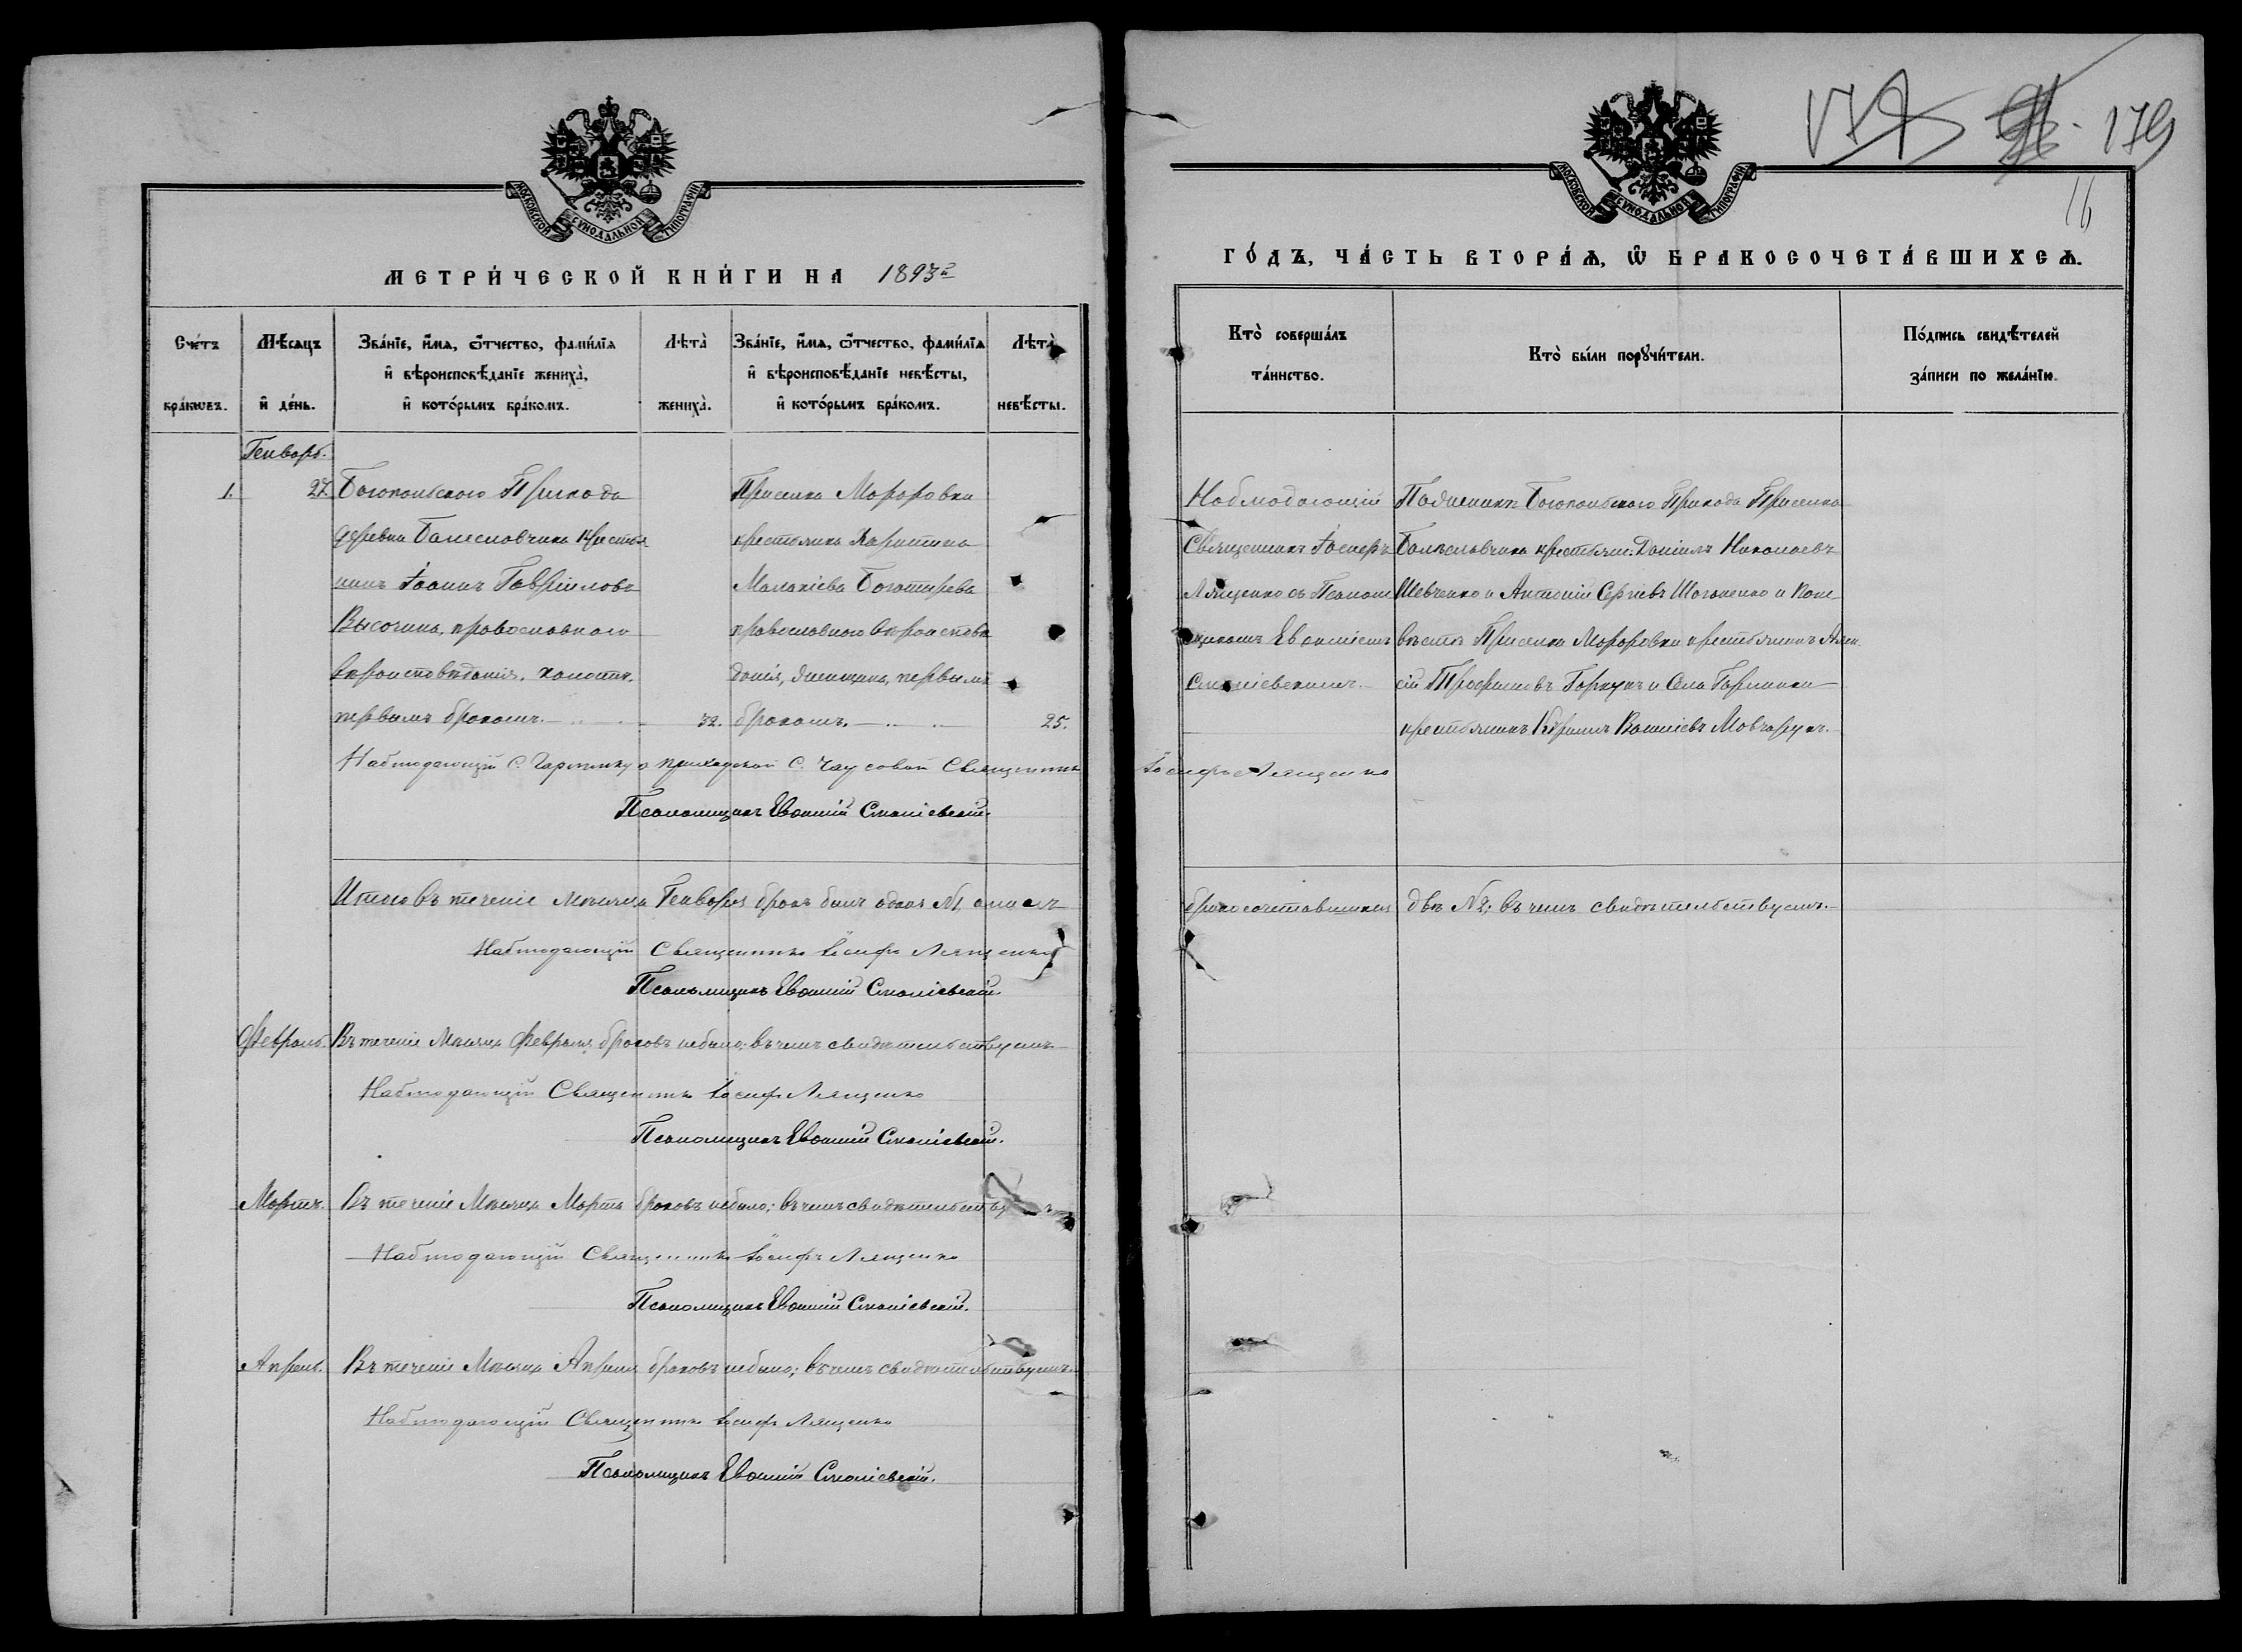 МОСКОВСКОЙ СѴНОДАЛЬНОЙ ТИПОГРАФІИ
МЕТРИ́ЧЕСКОЙ КНИ́ГИ НА 1893й
Сче́тъ бра́кѡвъ.
Мѣ́сяцъ и҆ де́нь.
Зва́нїе, и҆́мя, ѻ҆́тчество, фами́лїя
и҆ вѣроисповѣ́данїе жениха̀,
и҆ кото́рымъ бра́комъ.
Лѣта̀ жениха̀.
Зва́нїе, и҆́мя, ѻ҆́тчество, фами́лїя
и҆ вѣроисповѣ́данїе невѣ́сты,
и҆ кото́рымъ бра́комъ.
Лѣта̀ невѣ́сты.
Генварь.
1.
27.
Богопольского Прихода
деревни Болесловчика крестья
нинъ Іоаннъ Гавріиловъ
Высочинъ, православнаго
вѣроисповѣданія, холостъ,
первымъ бракомъ.
32.
Приселка Мороровки
крестьянка Харитина
Малахіева Богатирева
православнаго вѣроисповѣ
данія, дѣвица, первымъ
бракомъ.
25.
Наблюдающій С. Гармаку а приходской С. Чаусовой Священникъ
Псаломщикъ Евѳимій Смаліевскій.
Итого въ теченіе мѣсяца Генваря бракъ былъ одинъ №1, а лицъ
Наблюдающій Священникъ Іосифъ Лященко
Псаломщикъ Евѳимій Смаліевскій.
Февраль.
Въ теченіе Мѣсяца Февраля браковъ небыло; въ чемъ свидѣтельствуемъ
Наблюдающій Священникъ Іосифъ Лященко
Псаломщикъ Евѳимій Смаліевскій.
Мартъ.
Въ теченіе Мѣсяца Марта браковъ небыло; въ чемъ
Наблюдающій Священникъ Іосифъ Лященко
Псаломщикъ Евѳимій Смаліевскій.
Апрѣль.
Въ теченіе Мѣсяца Апрѣля браковъ небыло; въ чемъ свидѣтельствуемъ.
Наблюдающій Священникъ Іосифъ Лященко
Псаломщикъ Евѳимій Смаліевскій.
179
16
МОСКОВСКОЙ СѴНОДАЛЬНОЙ ТИПОГРАФІИ
ГО́ДЪ, ЧА́СТЬ ВТОРА́Я, Ѡ҆ БРАКОСОЧЕТА́ВШИХСЯ.
Кто̀ соверша́лъ
та́инство.
Кто̀ бы́ли порꙋчи́тели.
По́дпись свидѣ́телей
за́писи по жела́нїю.
Наблюдающій
Священникъ Іосифъ
Лященко съ Псалом
щикомъ Евѳиміемъ
Смаліевскимъ.
Іосифъ Лященко
По Богопольского Прихода Приселка
Болеславчика крестьяне: Даніилъ Николаевъ
Шевченко и Антоній Сергіевъ и
Приселка Мороровки крестьянинъ Алек
сій Трофимовъ Горкунъ и Села Гармаки
крестьянинъ
бракосочетавшихся двѣ №2; въ чемъ свидѣтельствуемъ.